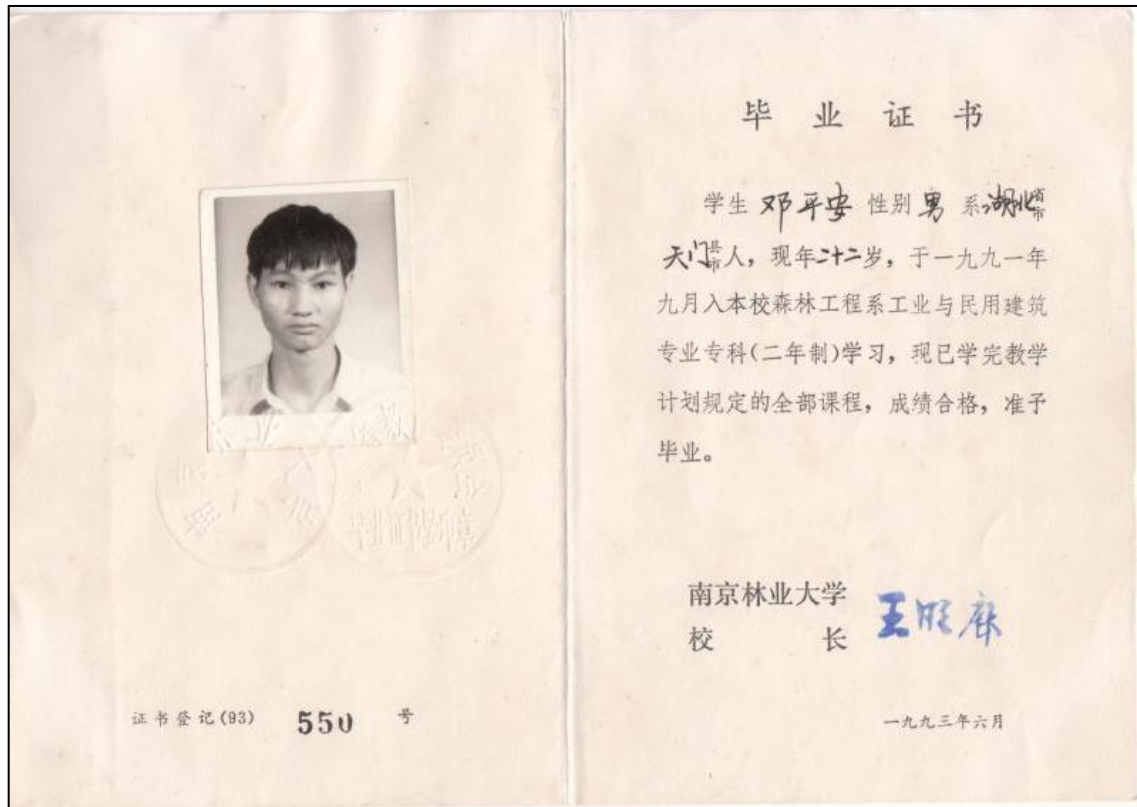 证书登记(93) 550 号
毕业证书
学生 邓平安 性别 男 系 湖北省市
天门县市人，现年二十二岁，于一九九一年
九月入本校森林工程系工业与民用建筑
专业专科(二年制)学习，现已学完教学
计划规定的全部课程，成绩合格，准予
毕业。
南京林业大学
校 长
一九九三年六月